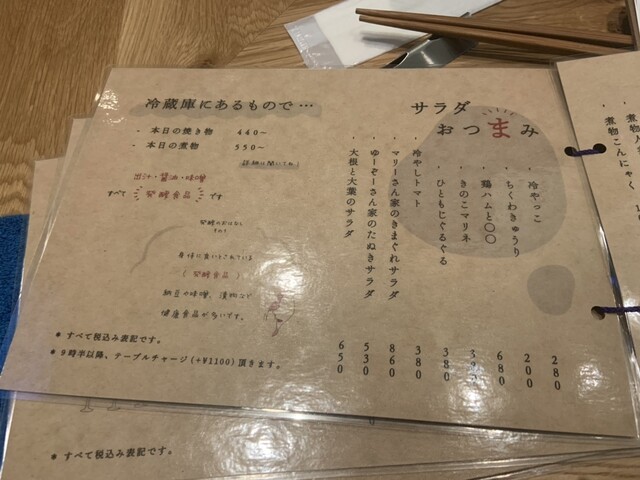 冷蔵庫にあるもので…
・ 本日の焼き物 440～
・ 本日の煮物 550～
詳細は聞いてね!
出汁・醤油・味噌
すべて 発酵食品 です
発酵のおはなし
その1
身体に良いとされている
(発酵食品)
納豆や味噌、漬物など
健康食品が多いです。
* すべて税込み表記です。
* 9時半以降、テーブルチャージ(+¥1100)頂きます。
サラダ
おつまみ
・ 冷やっこ 280
・ ちくわきゅうり 200
・ 鶏ハムと〇〇 680
・ きのこマリネ
・ ひともじぐるぐる 380
・ 冷やしトマト 380
・ マリーさん家のきまぐれサラダ 860
・ ゆーぞーさん家のたぬきサラダ 530
・ 大根と大葉のサラダ 650
・ 煮物こんにゃく
* すべて税込み表記です。